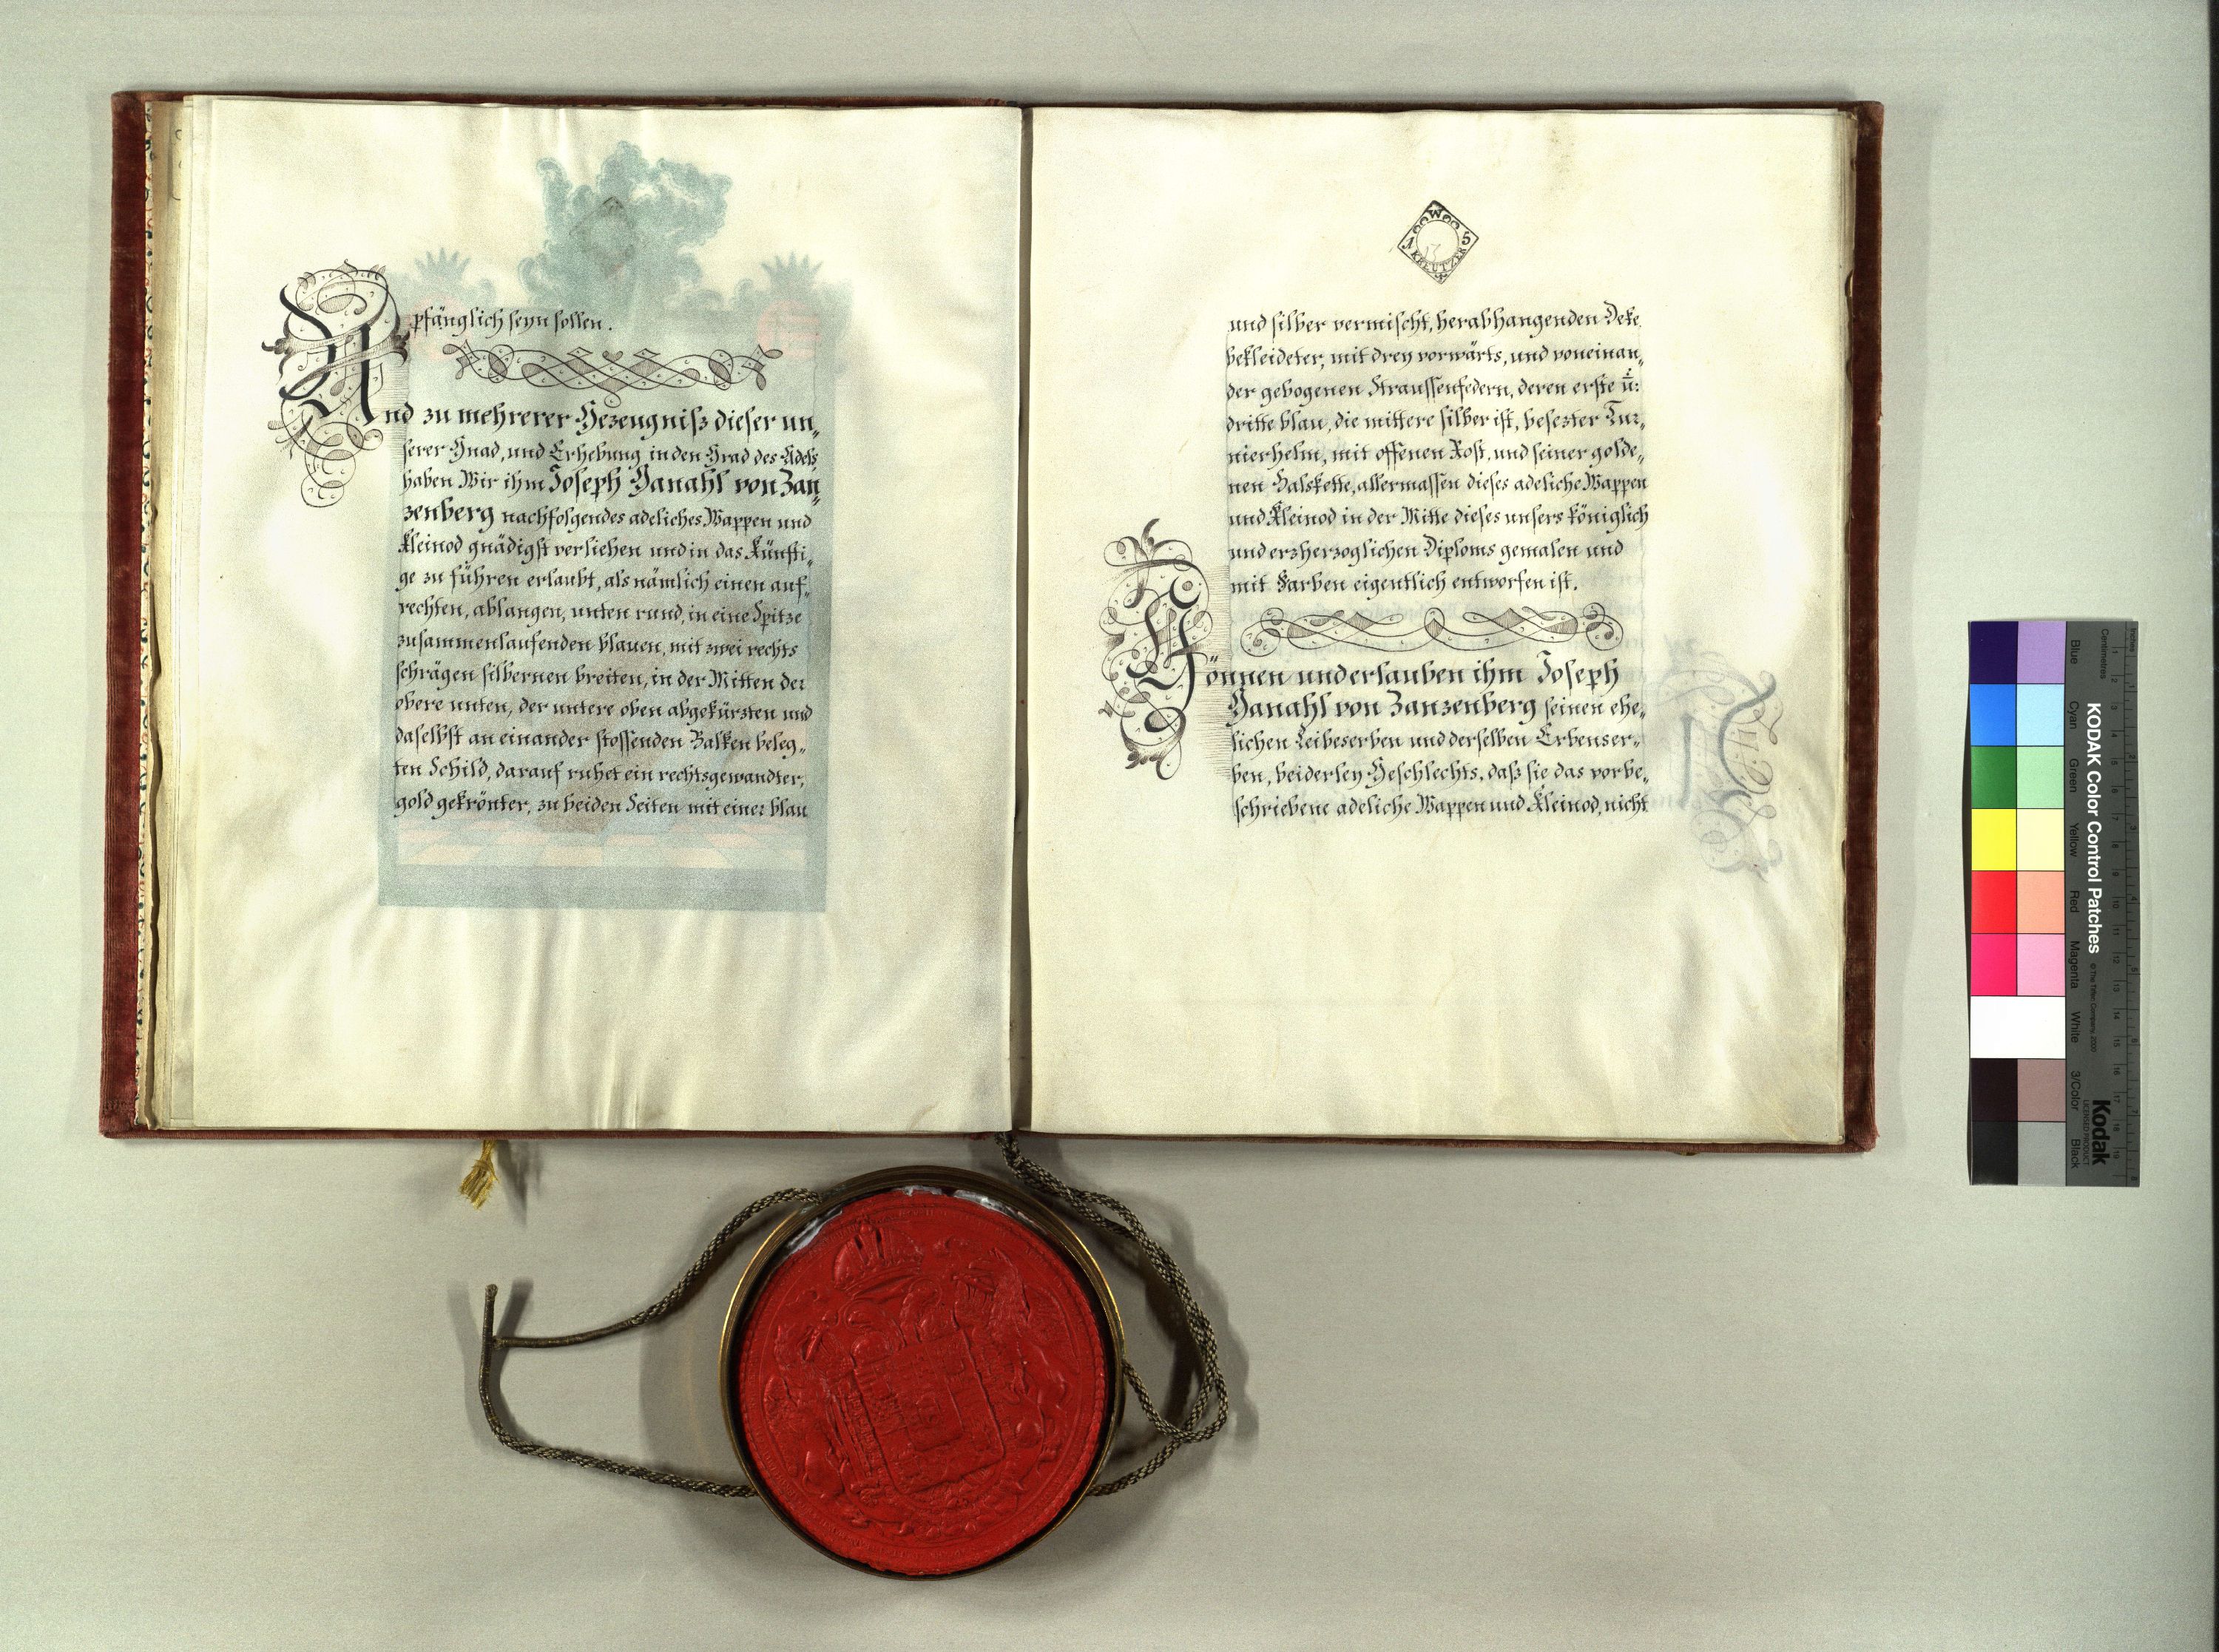 pfänglich seyn sollen.
Und zu mehrerer Gezeugniß dieser un„
serer Gnad, und Erhebung in den Grad des Adels
haben Wir ihm Joseph Ganahl von Zan„
zenberg nachfolgendes adeliches Wappen und
Kleinod gnädigst verliehen und in das Künfti„
ge zu führen erlaubt, als nämlich einen auf„
rechten, ablangen, unten rund, in eine Spitze
zusammenlaufenden blauen, mit zwei rechts
schrägen silbernen breiten, in der Mitten der
obere unten, der untere oben abgekürzten und
daselbst an einander stossenden Balken beleg„
ten Schild, darauf ruhet ein rechtsgewandter,
gold gekrönter, zu beiden Seiten mit einer blau
W
15
KREUTZER
und silber vermischt, herabhangenden Deke
bekleideter, mit drey vorwärts, und voneinan„
der gebogenen Straussenfedern, deren erste ū:
dritte blau, die mittere silber ist, besezter Tur„
nierhelm, mit offenen Rost, und seiner golde„
nen Halskette, allermassen dieses adeliche Wappen
und Kleinod in der Mitte dieses unsers königlich
und erzherzoglichen Diploms gemalen und
mit Farben eigentlich entworfen ist.
Gönnen und erlauben ihm Joseph
Ganahl von Zanzenberg seinen ehe„
lichen Leibeserben und derselben Erbenser„
ben, beiderley Geschlechts, daß sie das vorbe„
schriebene adeliche Wappen und Kleinod, nicht
KODAK Color Control Patches
© The Tiffen Company, 2000
Kodak
LICENSED PRODUCT
Blue
Cyan
Green
Yellow
Red
Magenta
White
3/Color
Black
Centimetres
Inches